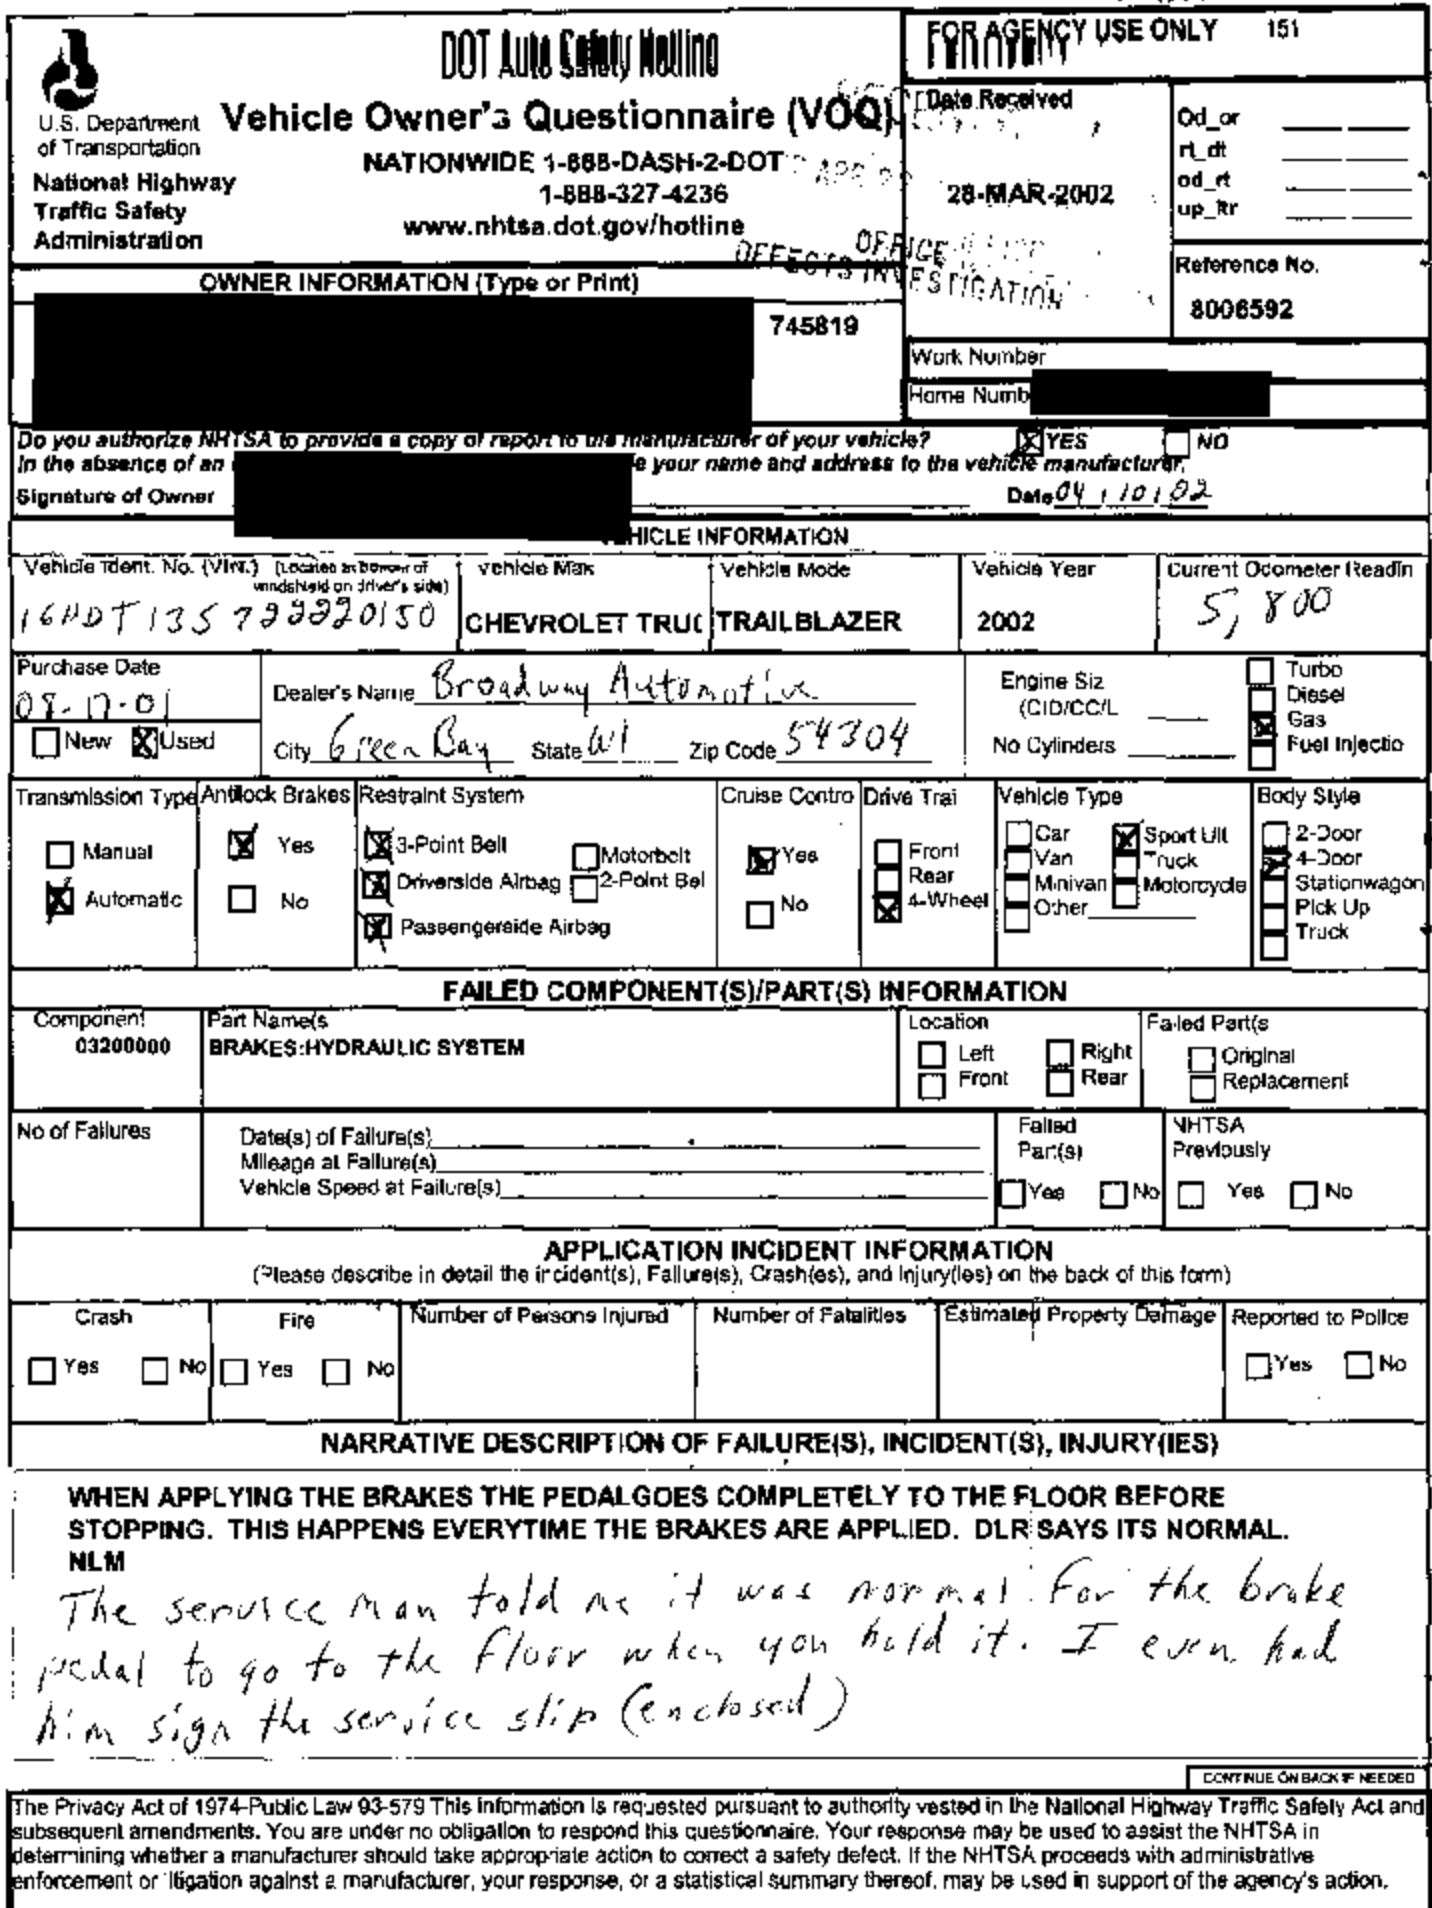 DOT Auto Safety Hotline
FOR AGENCY USE ONLY 151
U.S. Department
of Transportation
National Highway
Traffic Safety
Administration
Vehicle Owner's Questionnaire (VOQ)
NATIONWIDE 1-888-DASH-2-DOT
1-888-327-4236
www.nhtsa.dot.gov/hotline
Date Received
28-MAR-2002
OFFICE
DEFECTS INVESTIGATION
Od_or
rt_dt
od_rt
up_ltr
Reference No.
8006592
OWNER INFORMATION (Type or Print)
745819
Work Number
Home Numb
Do you authorize NHTSA to provide a copy of report to the manufacturer of your vehicle? YES NO
In the absence of an e your name and address to the vehicle manufacturer.
Signature of Owner Date 04 / 10 / 02
HICLE INFORMATION
Vehicle Ident. No. (VIN.) (Located at bottom of
windshield on driver's side)
Vehicle Mak Vehicle Mode Vehicle Year Current Odometer Readin
CHEVROLET TRUC TRAILBLAZER 2002 5,800
Purchase Date
08-17-01
New Used
Dealer's Name Broadway Automotive
City Green Bay State WI Zip Code 54304
Engine Siz
(CID/CC/L
No Cylinders
Turbo
Diesel
Gas
Fuel Injectio
Transmission Type Antilock Brakes Restraint System Cruise Contro Drive Trai Vehicle Type Body Style
Manual
Automatic
Yes
No
3-Point Belt
Driverside Airbag
Passengerside Airbag
Motorbelt
2-Point Bel
Yes
No
Front
Rear
4-Wheel
Car
Van
Minivan
Other
Sport Utl
Truck
Motorcycle
2-Door
4-Door
Stationwagon
Pick Up
Truck
FAILED COMPONENT(S)/PART(S) INFORMATION
Component
03200000
Part Name(s
BRAKES:HYDRAULIC SYSTEM
Location
Left Right
Front Rear
Failed Part(s
Original
Replacement
No of Failures
Date(s) of Failure(s)
Mileage at Failure(s)
Vehicle Speed at Failure(s)
Failed
Part(s)
Yes No
NHTSA
Previously
Yes No
APPLICATION INCIDENT INFORMATION
(Please describe in detail the incident(s), Failure(s), Crash(es), and Injury(ies) on the back of this form)
Crash Fire Number of Persons Injured Number of Fatalities Estimated Property Damage Reported to Police
Yes No Yes No Yes No
NARRATIVE DESCRIPTION OF FAILURE(S), INCIDENT(S), INJURY(IES)
WHEN APPLYING THE BRAKES THE PEDALGOES COMPLETELY TO THE FLOOR BEFORE
STOPPING. THIS HAPPENS EVERYTIME THE BRAKES ARE APPLIED. DLR SAYS ITS NORMAL.
NLM
The service man told me it was normal for the brake
pedal to go to the floor when you hold it. I even had
him sign the service slip (enclosed)
CONTINUE ON BACK IF NEEDED
The Privacy Act of 1974-Public Law 93-579 This information is requested pursuant to authority vested in the National Highway Traffic Safety Act and
subsequent amendments. You are under no obligation to respond this questionnaire. Your response may be used to assist the NHTSA in
determining whether a manufacturer should take appropriate action to correct a safety defect. If the NHTSA proceeds with administrative
enforcement or litigation against a manufacturer, your response, or a statistical summary thereof, may be used in support of the agency's action.